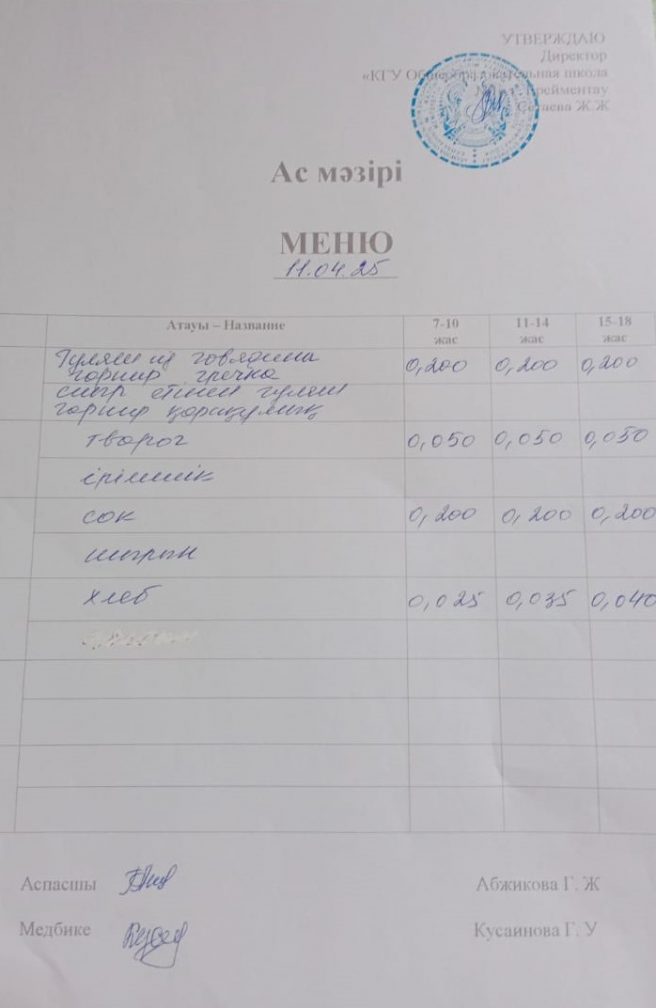 УТВЕРЖДАЮ
Директор
«КГУ Общеобразовательная школа
Ерейментау
Ж.Ж
Ас мәзірі
МЕНЮ
11.04.25
Атауы – Название 7-10 жас 11-14 жас 15-18 жас
Гуляш из говядина 0,200 0,200 0,200
гарнир гречка
сиыр етінен гуляш
гарнир қарақұмық
творог 0,050 0,050 0,050
ірімшік
сок 0,200 0,200 0,200
шырын
хлеб 0,025 0,035 0,040
Аспасшы Абжикова Г. Ж
Медбике Кусаинова Г. У